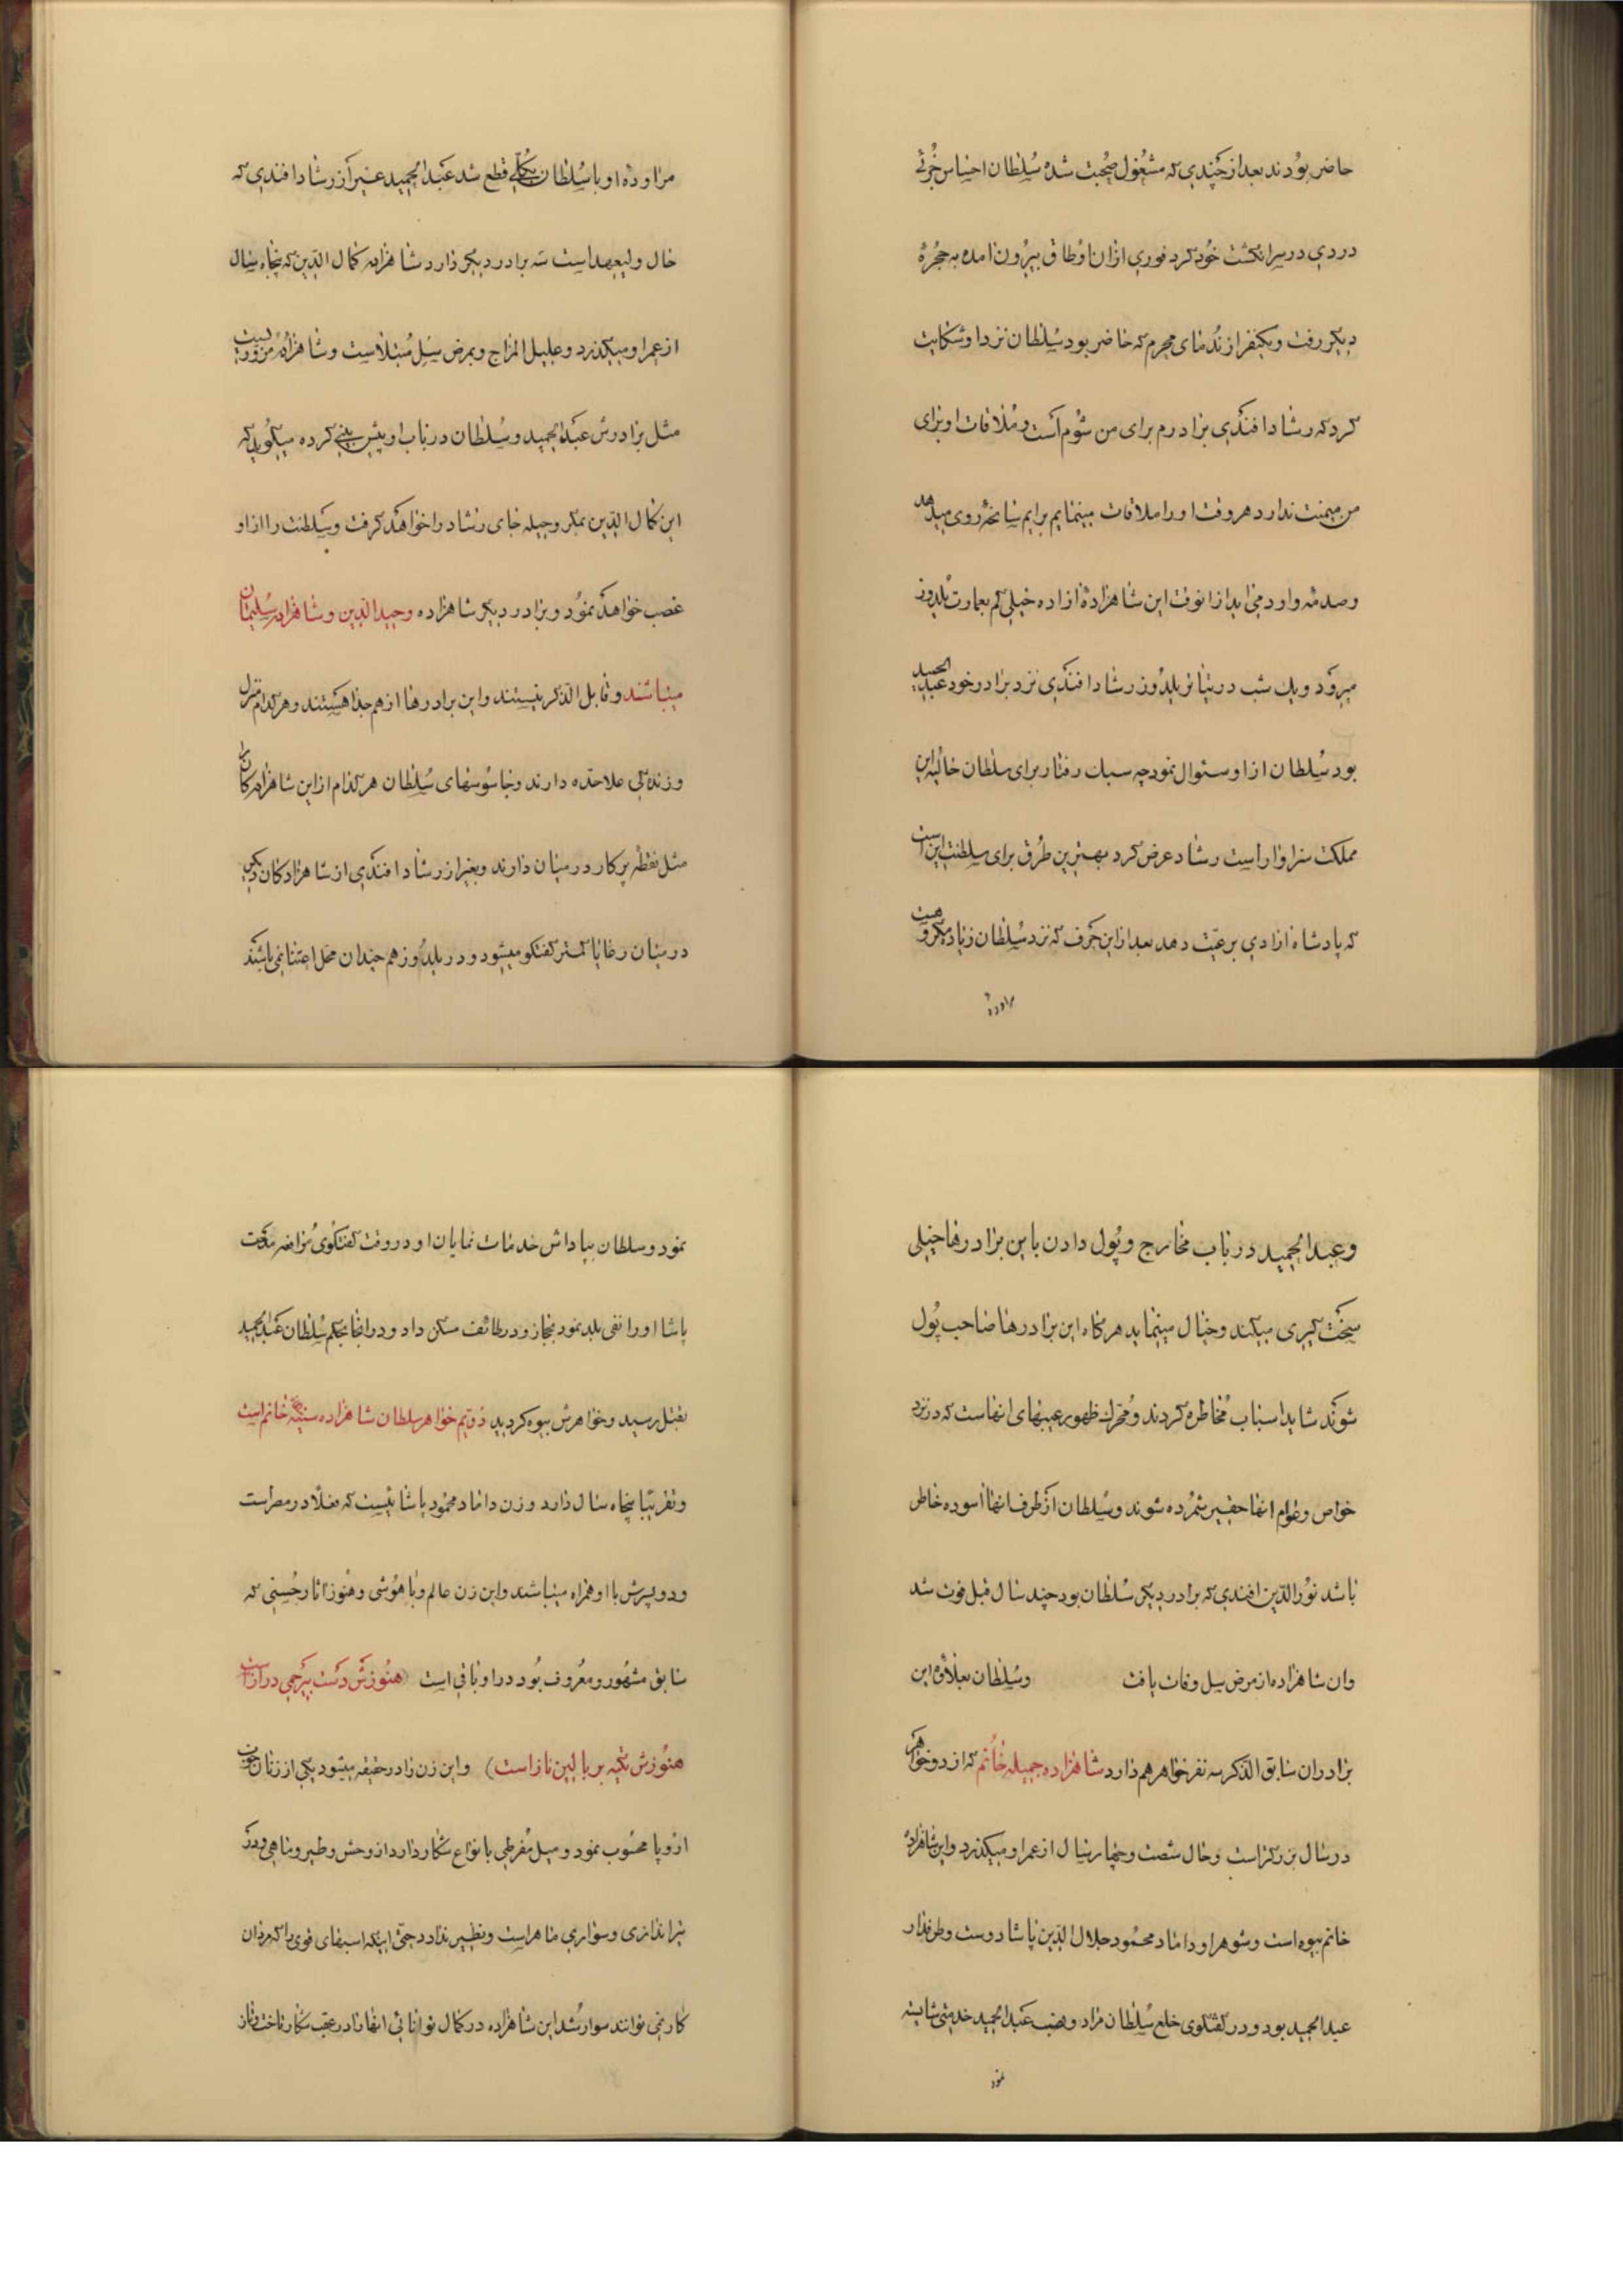 حاضر بودند بعد از چندی که مشغول صحبت شده سلطان احساس جزئی
دردی در سر انگشت خود کرد فوری ازان اوطاق بیرون امده به حجرهٔ
دیگر رفت و یکنفر از ندمای محرم که حاضر بود سلطان نزد او شکایت
کرد که رشاد افندی برادرم برای من شوم است و ملاقات او برای
من میمنت ندارد هر وقت او را ملاقات مینمایم برایم سانحهٔ روی میدهد
و صدمهٔ وارد می اید از انوقت این شاهزادهٔ ازاده خیلی کم بعمارت یلدوز
میرود و یك شب در تیاتر یلدوز رشاد افندی نزد برادر خود عبد الحمید
بود سلطان ازاو سئوال نمود چه سبك رفتار برای سلطان حالیه این
مملکت سزاوار است رشاد عرض کرد بهترین طرق برای سلطنت این است
که پادشاه ازادی برعیت دهد بعد از این حرف که نزد سلطان زیاد مکروهست
مراودهٔ
مراودهٔ او با سلطان بکلی قطع شد عبد الحمید غیر از رشاد افندی که
حال ولیعهد است سه برادر دیگر دارد شاهزاده کمال الدین که پنجاه سال
از عمر او میگذرد و علیل المزاج و بمرض سل مبتلا است و شاهزادهٔ مزوریست
مثل برادرش عبد الحمید و سلطان در باب او پیش بینی کرده میگوید که
این کمال الدین بمکر و حیله جای رشاد را خواهد گرفت و سلطنت را از او
غصب خواهد نمود و برادر دیگر شاهزاده وحید الدین و شاهزاده سلیمان
میباشند و قابل الذکر نیستند و این برادرها از هم جدا هستند و هر کدام منزل
و زندگی علاحده دارند و جاسوسهای سلطان هر کدام از این شاهزادگان را
مثل نقطهٔ پرکار در میان دارند و بغیر از رشاد افندی از شاهزادگان دیگر
در میان رعایا کمتر گفتگو میشود و در یلدوز هم چندان محل اعتنا نمی باشند
و عبد الحمید در باب مخارج و پول دادن باین برادرها خیلی
سخت گیری میکند و خیال مینماید هرگاه این برادرها صاحب پول
شوند شاید اسباب مخاطره گردند و محرك ظهور عیبهای انهاست که در نزد
خواص و عوام انها حقیر شمرده شوند و سلطان از طرف انها اسوده خاطر
باشد نور الدین افندی که برادر دیگر سلطان بود چند سال قبل فوت شد
وان شاهزاده از مرض سل وفات یافت و سلطان بعلاوهٔ این
برادران سابق الذکر سه نفر خواهر هم دارد شاهزاده جمیله خانم که از دو خواهر
در سال بزرگتر است و حال شصت و چهار سال از عمر او میگذرد و این شاهزاده
خانم بیوه است و شوهر او داماد محمود جلال الدین پاشا دوست و طرفدار
عبد الحمید بود و در گفتگوی خلع سلطان مراد و نصب عبد الحمید خدمتی شایسته
نمود
نمود و سلطان بپاداش خدمات نمایان او در وقت گفتگوی مرافعه مدحت
پاشا او را نفی بلد نمود بحجاز و در طائف مسکن داد و در انجا بحکم سلطان عبد الحمید
بقتل رسید و خواهرش بیوه گردید دویم خواهر سلطان شاهزاده سنیّه خانم است
و تقریبا پنجاه سال دارد و زن داماد محمود پاشا نیست که فعلا در مصر است
و دو پسرش با او همراه میباشند و این زن عالم و با هوشی و هنوز اثار حسنی که
سابق مشهور و معروف بود در او باقی است (هنوزش دست بیرحمی دراز است
هنوزش تکیه بر بالین ناز است) و این زن را در حقیقه میشود یکی از زنان خوب
اروپا محسوب نمود و میل مفرطی بانواع شکار دارد از وحش و طیر و ماهی و در
تیراندازی و سواری ماهر است و نظیر ندارد حتی اینکه اسبهای قوی را که مردان
کار نمی توانند سوار شد این شاهزاده در کمال توانائی انها را در عقب شکار تاخت و تاز